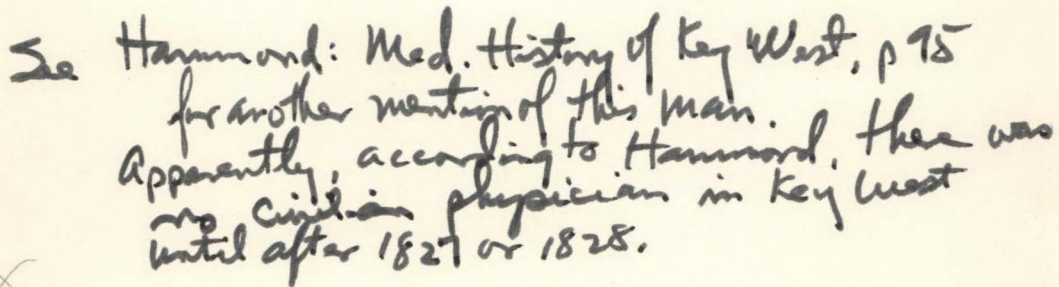 See Hammond: Med. History of Key West, p 95
for another mention of this man.
Apparently, according to Hammond, there was
no civilian physician in Key West
until after 1827 or 1828.